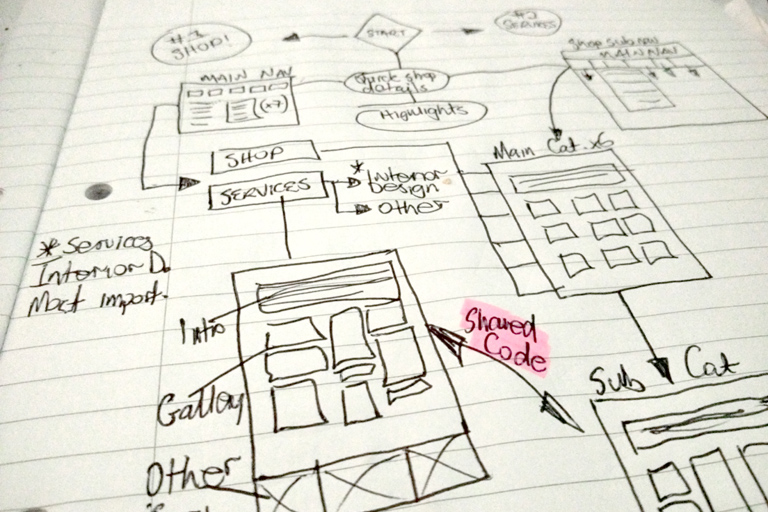 #1
SHOP!
START
#2
SERVICES
Shop Sub nav
MAIN NAV
MAIN NAV
(x7)
Quick shop
details
Highlights
SHOP
SERVICES
* Interior
Design
Other
Main Cat. x6
* Services
Interior D.
Most import.
Intro
Gallery
Shared
Code
Sub Cat
Other